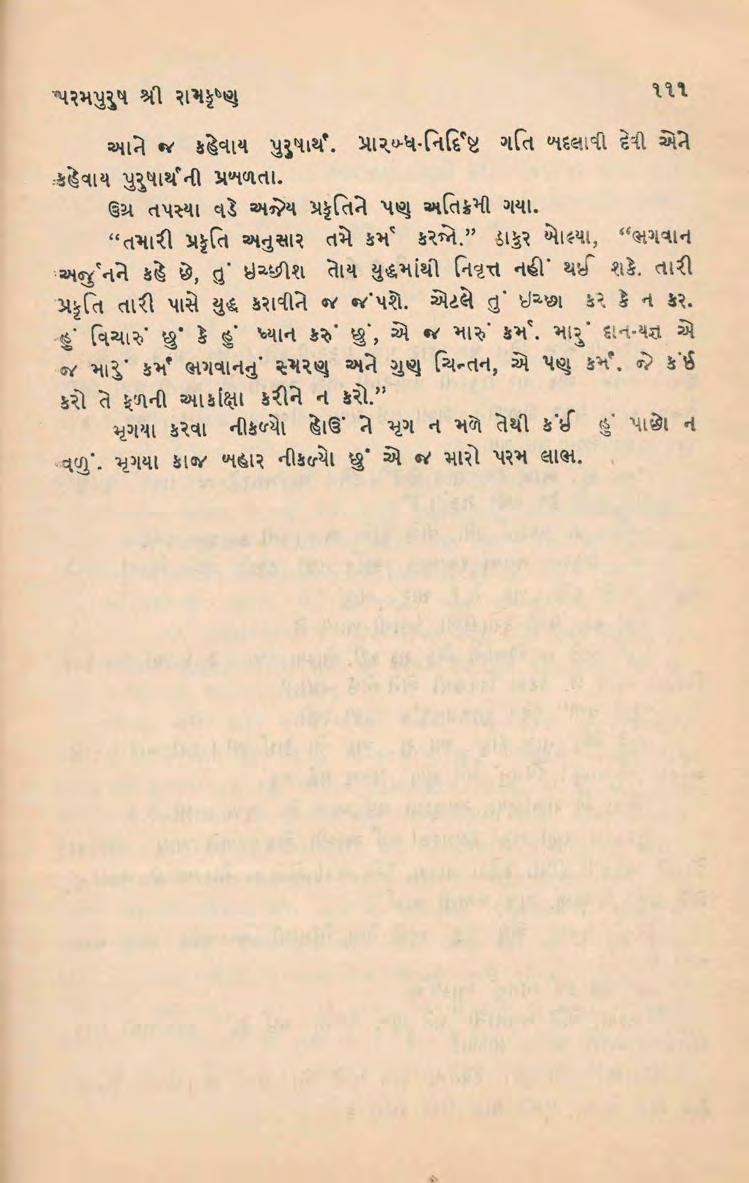 પરમપુરુષ શ્રી રામકૃષ્ણ ૧૧૧
આને જ કહેવાય પુરુષાર્થ. પ્રારબ્ધ-નિર્દિષ્ટ ગતિ બદલાવી દેવી એને
કહેવાય પુરુષાર્થની પ્રબળતા.
ઉગ્ર તપસ્યા વડે અજેય પ્રકૃતિને પણ અતિક્રમી ગયા.
“તમારી પ્રકૃતિ અનુસાર તમે કર્મ કરજો.” ઠાકુર બોલ્યા, “ભગવાન
અર્જુનને કહે છે, તું ઇચ્છીશ તોય યુદ્ધમાંથી નિવૃત્ત નહીં થઈ શકે. તારી
પ્રકૃતિ તારી પાસે યુદ્ધ કરાવીને જ જંપશે. એટલે તું ઇચ્છા કર કે ન કર.
હું વિચારું છું કે હું ધ્યાન કરું છું, એ જ મારું કર્મ. મારું દાન-યજ્ઞ એ
જ મારું કર્મ ભગવાનનું સ્મરણ અને ગુણ ચિન્તન, એ પણ કર્મ. જે કંઈ
કરો તે ફળની આકાંક્ષા કરીને ન કરો.”
મૃગયા કરવા નીકળ્યો હોઉં ને મૃગ ન મળે તેથી કંઈ હું પાછો ન
વળું. મૃગયા કાજ બહાર નીકળ્યો છું એ જ મારો પરમ લાભ.